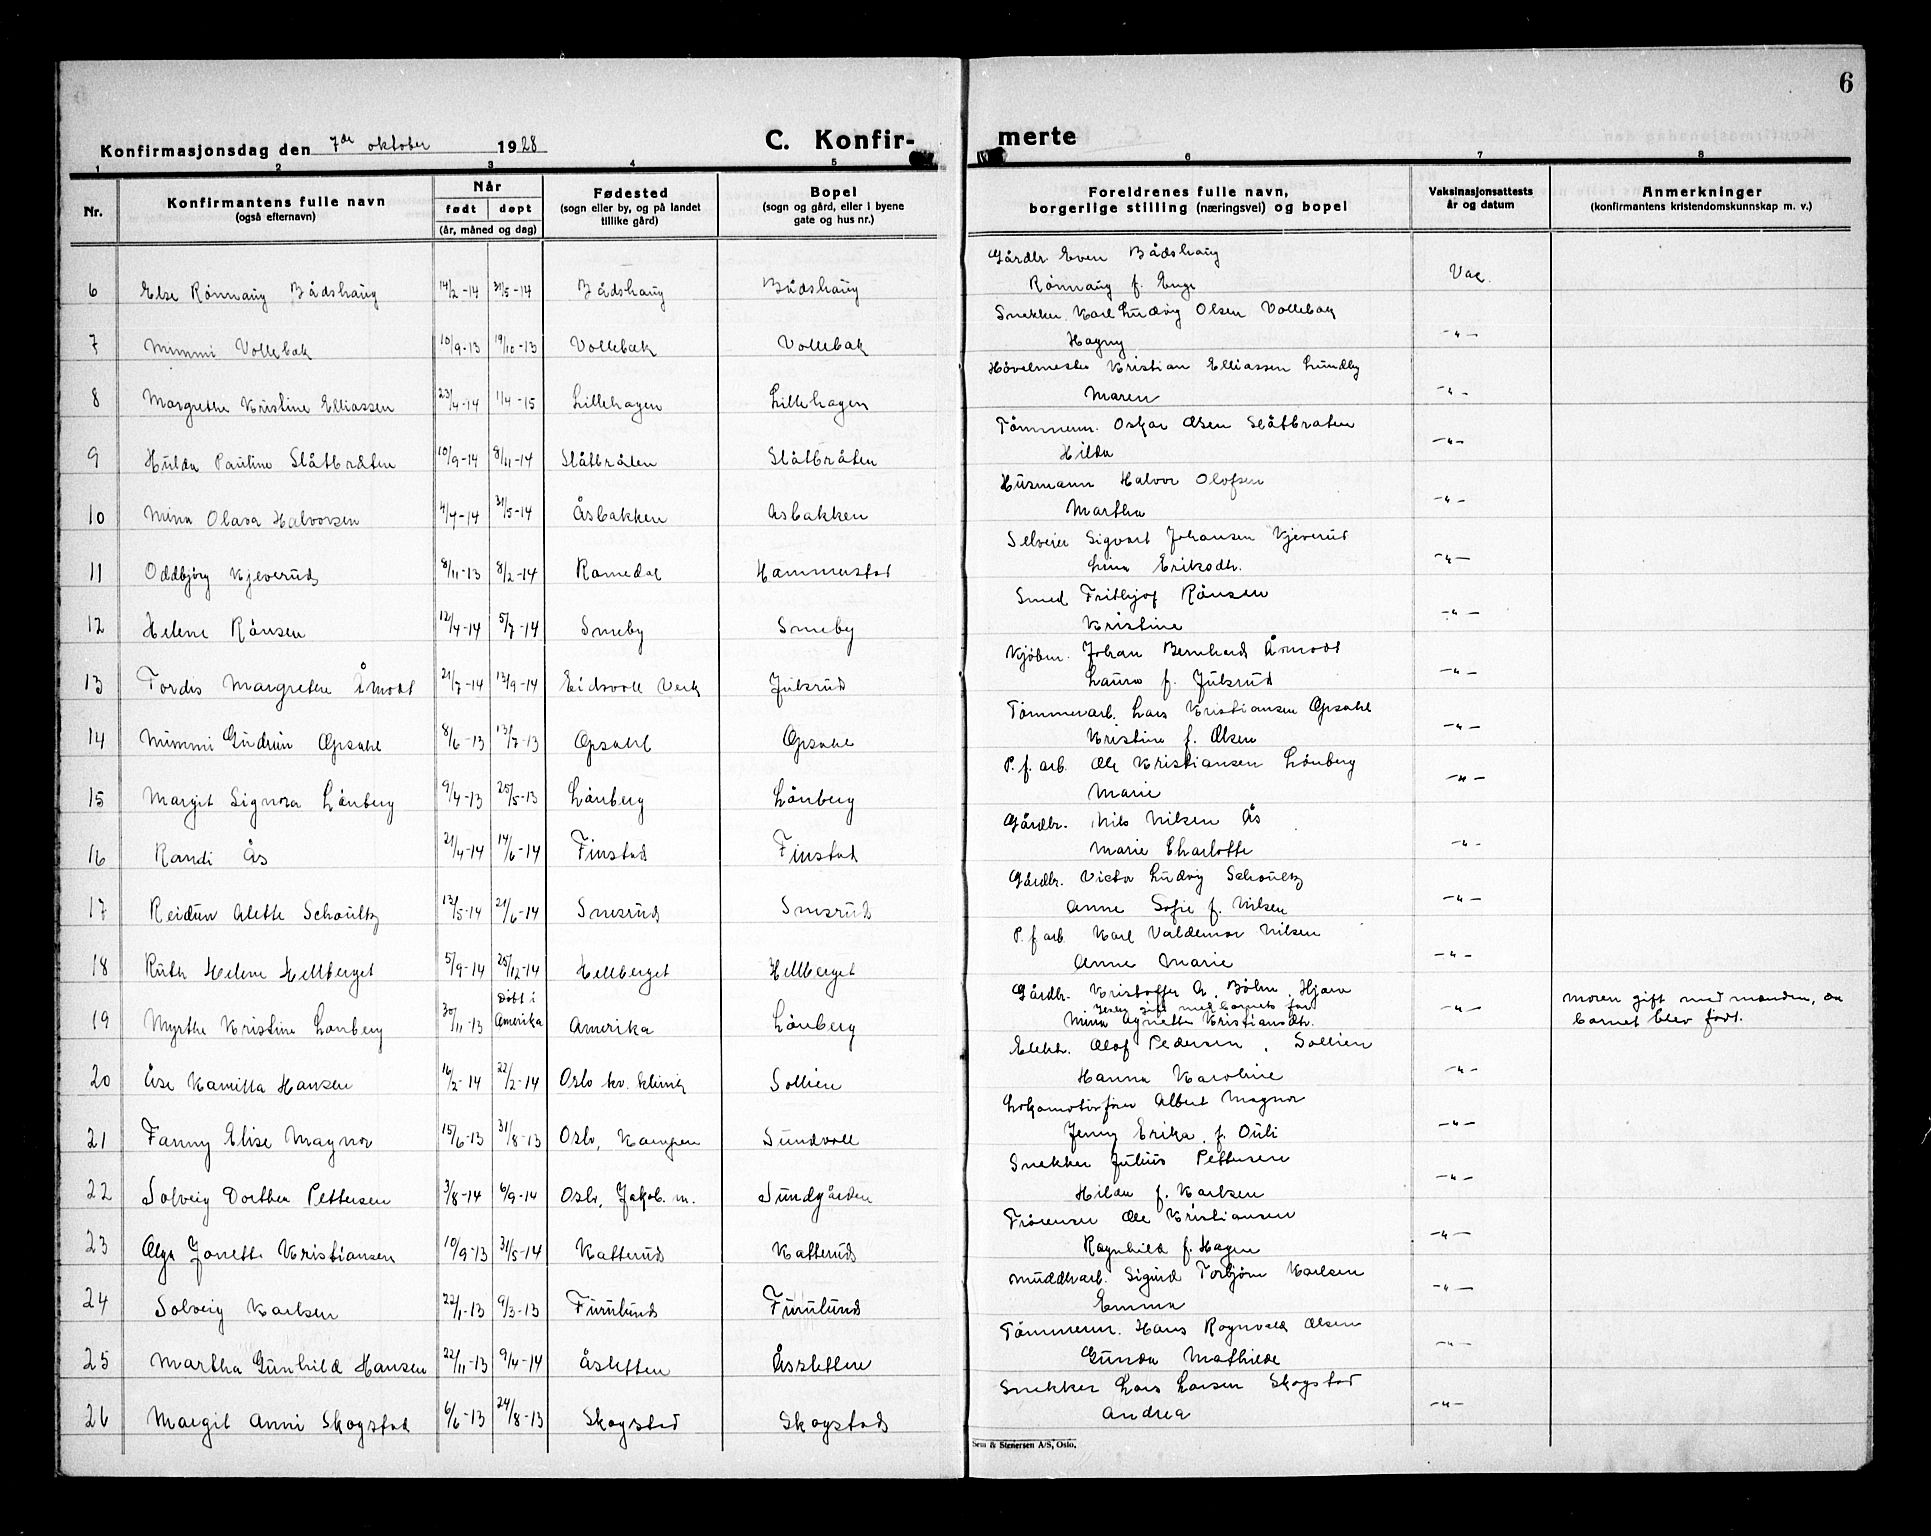 6
Konfirmasjonsdag den 7de oktober 1928 C. Konfir- merte
1 2 3 4 5 6 7 8
Nr. Konfirmantens fulle navn (også efternavn) Når født døpt (år, måned og dag) Fødested (sogn eller by, og på landet tillike gård) Bopel (sogn og gård, eller i byene gate og hus nr.) Foreldrenes fulle navn, borgerlige stilling (næringsvei) og bopel Vaksinasjonsattests år og datum Anmerkninger (konfirmantens kristendomskunnskap m. v.)
Gårdbr. Even Bådshaug
6 Else Rønnaug Bådshaug 14/2-14 31/5-14 Bådshaug Bådshaug Rønnaug f. Enge Vac.
Snekker Karl Ludvig Olsen Vollebæk
7 Mimmi Vollebæk 10/9-13 19/10-13 Vollebæk Vollebæk Hagny -"-
Høvelmester Kristian Elliassen Lundby
8 Margrethe Kristine Elliassen 23/4-14 1/4-15 Lillehagen Lillehagen Maren -"-
Tømmerm. Oskar Olsen Slåtbråten
9 Hulda Pauline Slåtbråten 10/9-14 8/11-14 Slåtbråten Slåtbråten Hilda -"-
Husmann Halvor Olofsen
10 Mina Olava Halvorsen 4/4-14 31/5-14 Åsbakken Åsbakken Martha -"-
Selveier Sigvart Johansen Kjeverud
11 Oddbjørg Kjeverud 8/11-13 8/2-14 Romedal Hammerstad Lina Eriksdtr. -"-
Smed Frithjof Rånsen
12 Helene Rånsen 12/4-14 5/7-14 Smeby Smeby Kristine -"-
Kjøbm. Johan Bernhard Åmodt
13 Tordis Margrethe Åmodt 21/7-14 13/9-14 Eidsvoll Verk Julsrud Laura f. Julsrud -"-
Tømmerarb. Lars Kristiansen Opsahl
14 Mimmi Gudrun Opsahl 8/6-13 13/7-13 Opsahl Opsahl Kristine f. Olsen -"-
P. f. arb. Ole Kristiansen Lønberg
15 Margit Signora Lønberg 9/4-13 25/5-13 Lønberg Lønberg Marie -"-
Gårdbr. Nils Nilsen Ås
16 Randi Ås 21/4-14 14/6-14 Finstad Finstad Marie Charlotte -"-
Gårdbr. Victor Ludvig Schoultz
17 Reidun Alette Schoultz 13/5-14 21/6-14 Snesrud Snesrud Anne Sofie f. Nilsen -"-
P. f arb. Karl Valdemar Nilsen
18 Ruth Helene Hellberget 5/9-14 25/12-14 Hellberget Hellberget Anne Marie -"-
Gårdbr. Kristoffer A. Bøhn, Hjera
19 Myrthe Kristine Lønberg 30/11-13 Døbt i Amerika Amerika Lønberg gift med barnets far Mina Agnette Kristiansdtr. -"- Moren gift med manden, da barnet blev født.
Elektr. Olof Pedersen, Sollien
20 Åse Kamilla Hansen 16/2-14 22/2-14 Oslo kv. klinik Sollien Hanna Karoline -"-
Lokomotivfører Albert Magnor
21 Fanny Elise Magnor 15/6-13 31/8-13 Oslo, Kampen Sundvoll Jenny Erika, f. Ouli -"-
Snekker Julius Pettersen
22 Solveig Dorthea Pettersen 3/8-14 6/9-14 Oslo, Jakob. m. Sundgården Hilda f. Karlsen -"-
Ole Kristiansen
23 Olga Jonette Kristiansen 10/9-13 31/5-14 Katterud Katterud Ragnhild f. Hagen -"-
Muddrarb. Sigurd Torbjørn Karlsen
24 Solveig Karlsen 22/1-13 9/3-13 Furulund Furulund Emma -"-
Tømmerm. Hans Ragnvald Olsen
25 Martha Gunhild Hansen 22/11-13 9/4-14 Åsletten Åssletten Gunda Mathilde -"-
Snekker Lars Larsen Skogstad
26 Margit Anni Skogstad 6/6-13 24/8-13 Skogstad Skogstad Andrea -"-
Sem & Stenersen A/S, Oslo.